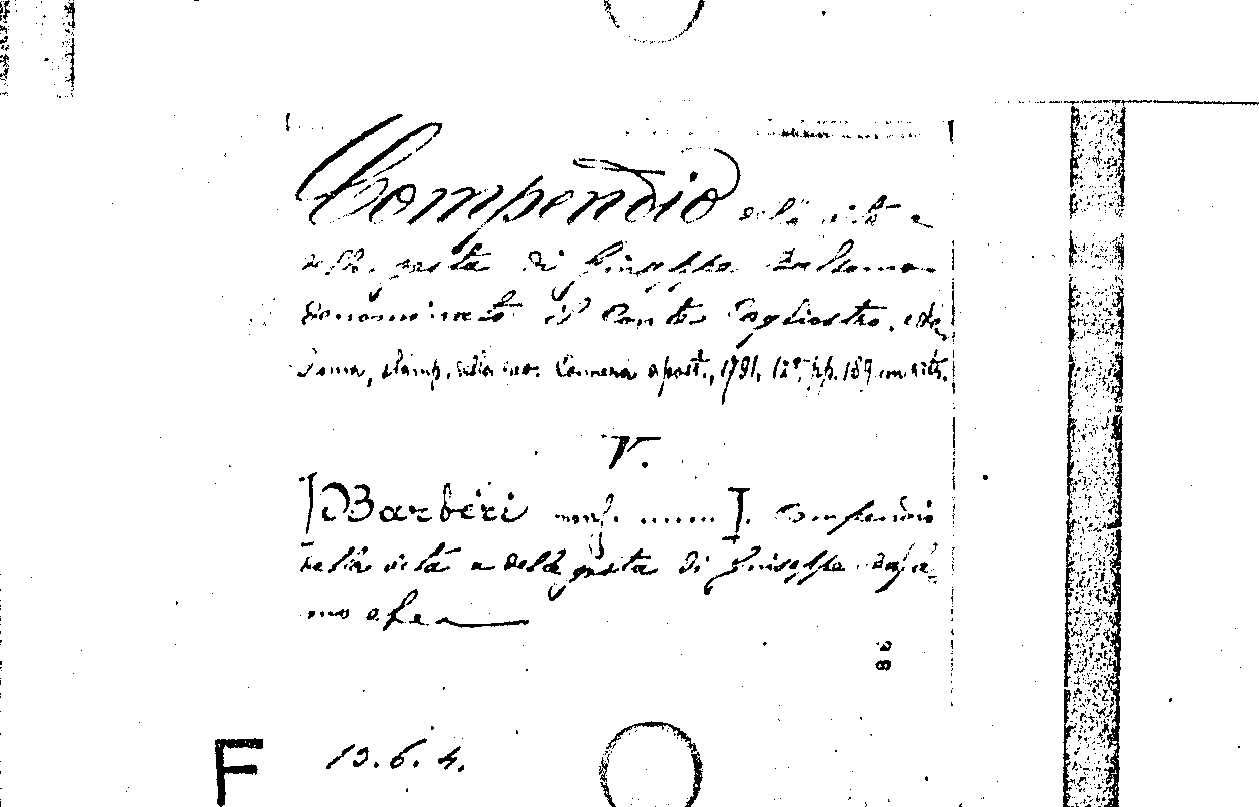 Compendio della vita e
delle gesta di Giuseppe Balsamo
denominato il Conte Cagliostro, che
Roma, stamp. della rev. Camera apost., 1791, 12°, pp. 189 con ritr.
V.
[Barbèri mons. ]. Compendio
della vita e delle gesta di Giuseppe
mo ·
88
F 13.6.4.